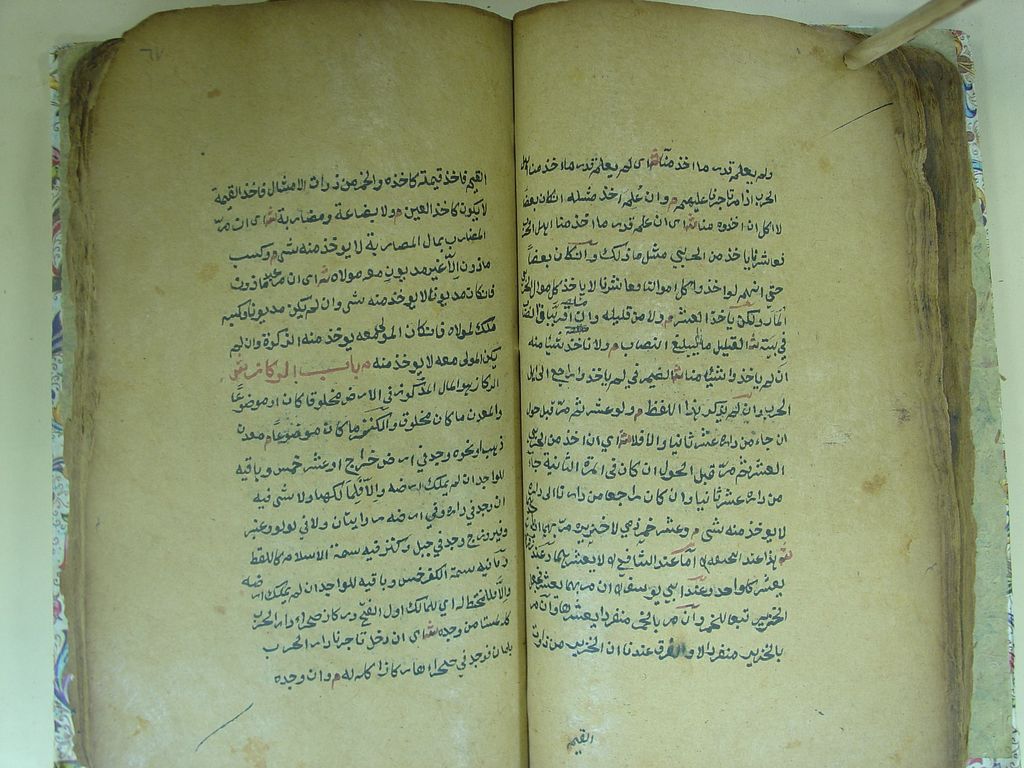 ولم يعلم قدر ما اخذ منا ش اى لم يعلم قدر ما اخذ منا اهل
الحرب اذا مر تاجرنا عليهم م وان علم اخذ مثله ان كان بعضا
لا كل ان اخذوه منا ش اى ان علم قدر ما اخذ منا اهل الحرب
فعاشرنا ياخذ من الحربي مثل ما ذلك وان كان بعضا
حتى انهم لو اخذوا كل اموالنا فعاشرنا لا ياخذ كل اموال الحربي
المار ولكن ياخذ العشر م ولا من قليله وان اقر بباقي النصاب
في بيته ش القليل ما لم يبلغ النصاب م ولا ناخذ شيئا منه
ان لم ياخذوا شيئا منا ش الضمير في لم ياخذوا راجع الى اهل
الحرب وان لم يذكر هذا اللفظ م ولو عشر ثم مر قبل حول
ان جاء من داره عشر ثانيا والا فلا ش اي ان اخذ من الحربي
العشر ثم مر قبل الحول ان كان في المرة الثانية جاء
من داره عشر ثانيا وان كان راجعا من دارنا الى داره
لا يوخذ منه شي م وعشر خمر ذمي لا خنزيره مر بهما
هذا عند ابي حنيفه اما عند الشافعي لا يعشرهما وعند
يعشر كل واحد وعند ابي يوسف ان مر بهما يعشر
الخنزير تبعا للخمر وان مر بالخمر منفردا يعشرها وان مر
بالخنزير منفردا لا والفرق عندنا ان الخنزير من ذوات
القيم
٦٧
القيم فاخذ قيمته كاخذه والخمر من ذوات الامثال فاخذ القيمة
لا يكون كاخذ العين م ولا بضاعة ومضاربة ش اى ان مر
المضارب بمال المضاربة لا يوخذ منه شي م وكسب
ماذون الا غير مديون معه مولاه ش اى ان مر عبد ماذون
فان كان مديونا لا يوخذ منه شى وان لم يكن مديونا وكسبه
ملك لمولاه فان كان المولى معه يوخذ منه الزكوة وان لم
يكن المولى معه لا يوخذ منه م باب الركاز
الركاز هو المال المذكور في الارض مخلوقا كان او موضوعا
والمعدن ما كان مخلوقا والكنز ما كان موضوعا م معدن
ذهب او نحوه وجد في ارض خراج او عشر خمس وباقيه
للواجد ان لم يملك ارضه والا فلمالكها ولا شى فيه
ان وجد في داره وفي ارضه روايتان ولا في لولو وعنبر
وفيروزج وجد في جبل وكنز فيه سمة الاسلام كاللقطة
وما فيه سمة الكفر خمس وباقيه للواجد ان لم يملك ارضه
والا فللمختط له اي للمالك اول الفتح وركاز صحراء دار الحرب
كله لمستامن وجده ش اى ان دخل تاجرنا دار الحرب
بامان فوجد في صحراءها ركازا كله له م وان وجده